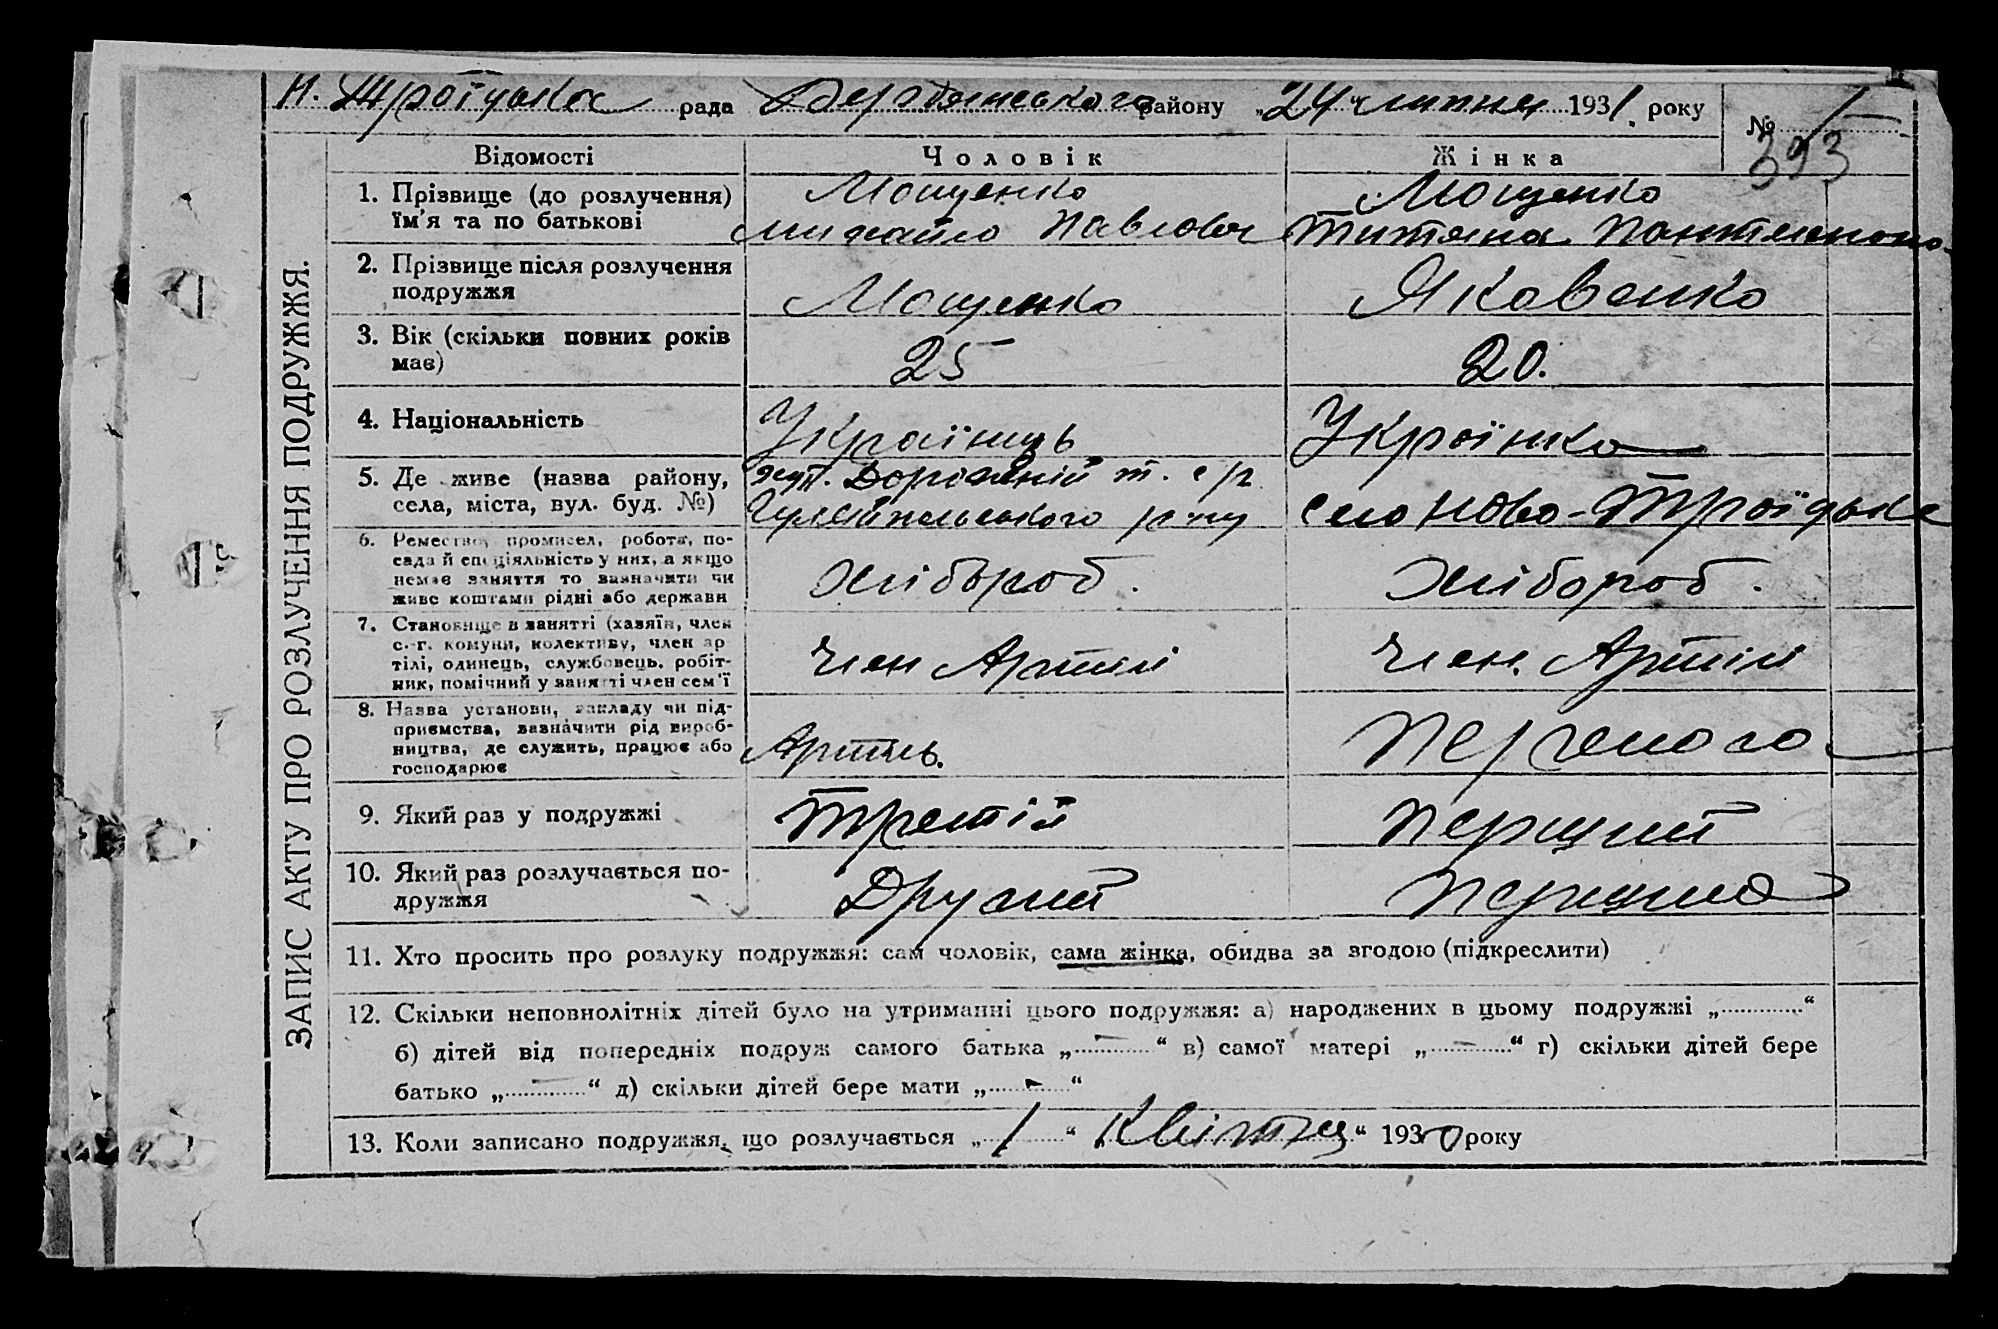 Н. Троїцька рада Бердянського району „24“ липня 1931. року
№ 1
393
ЗАПИС АКТУ ПРО РОЗЛУЧЕННЯ ПОДРУЖЖЯ.
Відомості Чоловік Жінка
1. Прізвище (до розлучення) Мощенко Мощенко
ім'я та по батькові Михайло Павлович Титяна
2. Прізвище після розлучення
подружжя Мощенко Яковенко
3. Вік (скільки повних років
має) 25 20.
4. Національність Українець Українка
5. Де живе (назва району, хут. с/р
села, міста, вул. буд. №) Гуляйпольського р-ну село Ново-Троїцьке
6. Ремество, промисел, робота, по-
сада й спеціяльність у них, а якщо
немає заняття то зазначити чи
живе коштами рідні або держави Хлібороб. Хлібороб.
7. Становище в занятті (хазяїн, член
с.-г. комуни, колективу, член ар
тілі, одинець, службовець, робіт-
ник, помічний у занятті член сем'ї Член Артілі Член. Артілі
8. Назва установи, закладу чи під-
приємства, зазначити рід вироб-
ництва, де служить, працює або
господарює Артіль.
9. Який раз у подружжі Третій Перший
10. Який раз розлучається по-
дружжя Другий
11. Хто просить про розлуку подружжя: сам чоловік, сама жінка, обидва за згодою (підкреслити)
12. Скільки неповнолітніх дітей було на утриманні цього подружжя: а) народжених в цьому подружжі „............“
б) дітей від попередніх подруж самого батька „—“ в) самої матері „—“ г) скільки дітей бере
батько „—“ д) скільки дітей бере мати „—“
13. Коли записано подружжя, що розлучається „1“ „Квітня“ 1930 року